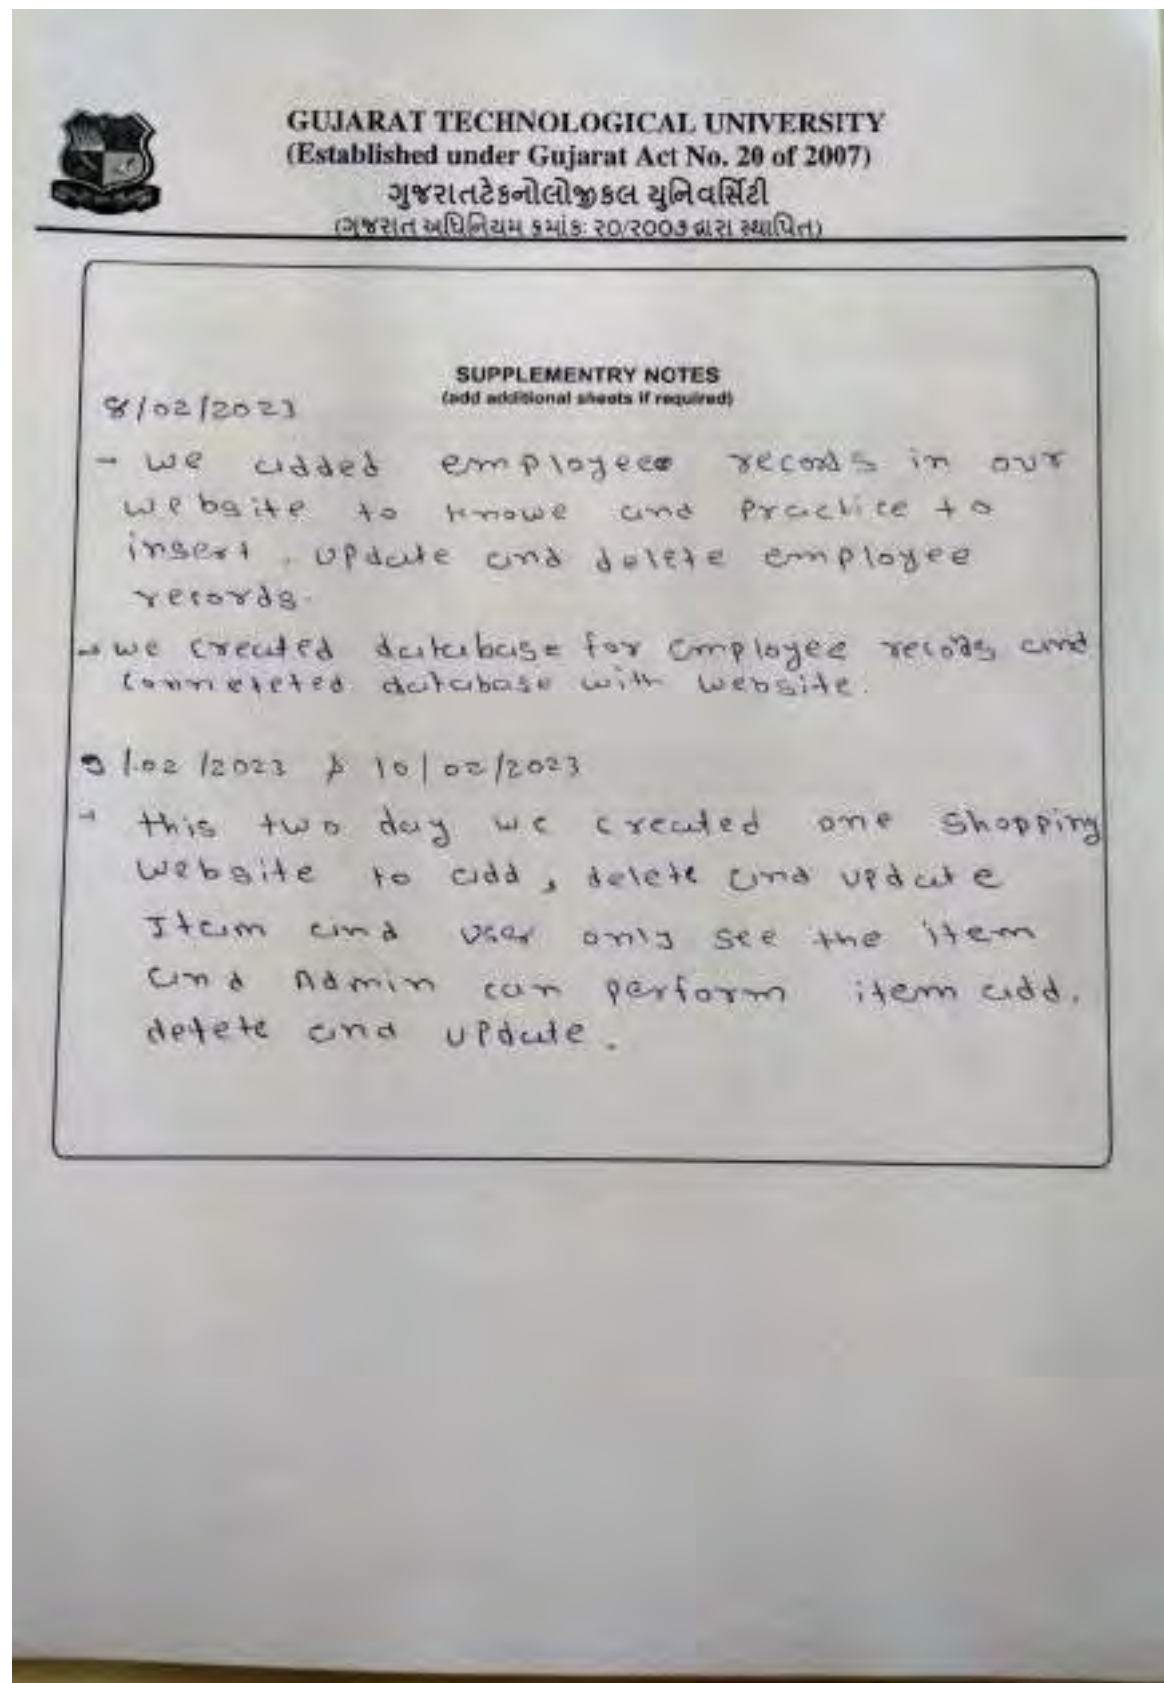 GUJARAT TECHNOLOGICAL UNIVERSITY
(Established under Gujarat Act No. 20 of 2007)
ગુજરાતટેકનોલોજીકલ યુનિવર્સિટી
(ગુજરાત અધિનિયમ ક્રમાંક: ૨૦/૨૦૦૭ દ્વારા સ્થાપિત)
SUPPLEMENTRY NOTES
(add additional sheets if required)
8/02/2023
- we added employee records in our
website to knowe and practice to
insert, update and delete employee
records.
→ we created database for employee records and
conneteted database with website.
9/02/2023 & 10/02/2023
→ this two day we created one shopping
website to add, delete and update
Itam and user only see the item
and Admin can perform item add,
detete and update.